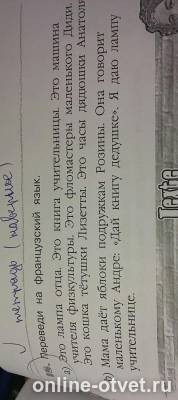 тетрадь (наверное)
Переведи на французский язык.
а) Это лампа отца. Это книга учительницы. Это машина
учителя физкультуры. Это фломастеры маленького Диди.
Это кошка тётушки Лизетты. Это часы дядюшки Анатоля
Мама даёт яблоки подружкам Розины. Она говорит
маленькому Андре: «Дай книгу дедушке». Я даю лампу
учительнице.
Texte
online-otvet.ru